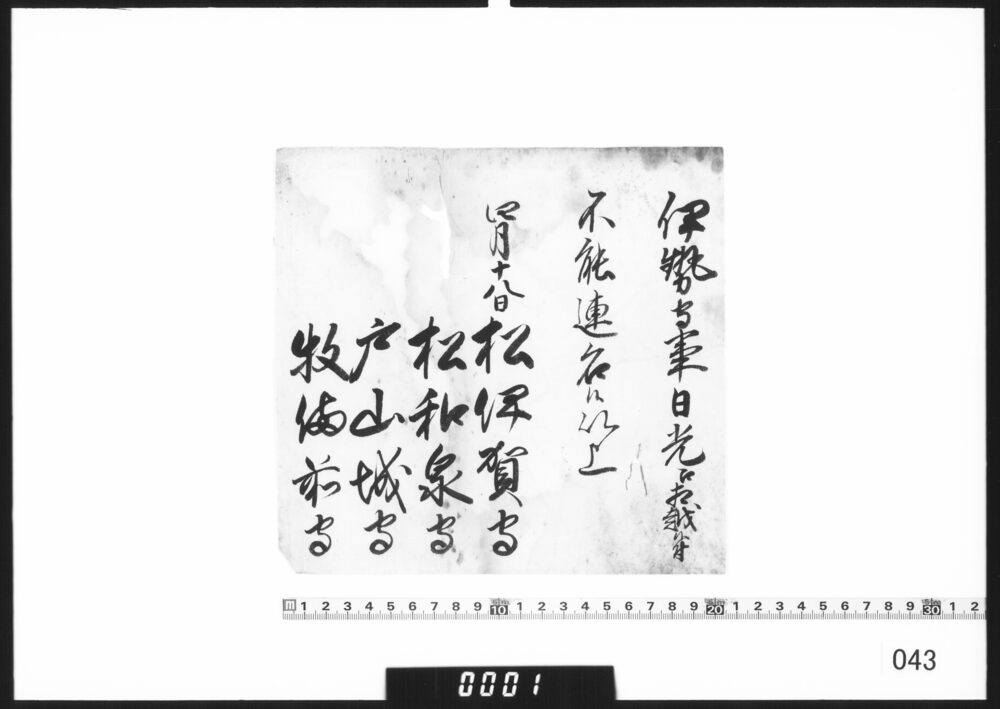 伊勢守事日光江相越候付
不能連名候以上
四月十八日
松伊賀守
松和泉守
戸山城守
牧備前守
m 1 2 3 4 5 6 7 8 9 10 1 2 3 4 5 6 7 8 9 20 1 2 3 4 5 6 7 8 9 30 1 2
043
0001